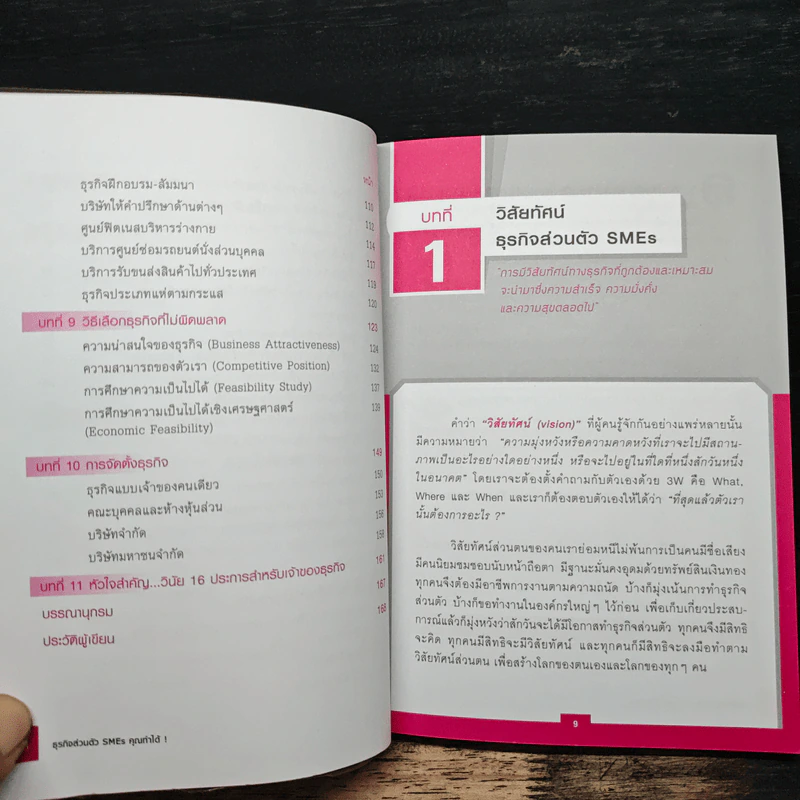 หน้า
ธุรกิจฝึกอบรม-สัมมนา 110
บริษัทให้คำปรึกษาด้านต่างๆ 112
ศูนย์ฟิตเนสบริหารร่างกาย 114
บริการศูนย์ซ่อมรถยนต์นั่งส่วนบุคคล 117
บริการรับขนส่งสินค้าไปทั่วประเทศ 119
ธุรกิจประเภทแห่ตามกระแส 120
บทที่ 9 วิธีเลือกธุรกิจที่ไม่ผิดพลาด 123
ความน่าสนใจของธุรกิจ (Business Attractiveness) 124
ความสามารถของตัวเรา (Competitive Position) 132
การศึกษาความเป็นไปได้ (Feasibility Study) 137
การศึกษาความเป็นไปได้เชิงเศรษฐศาสตร์ 139
(Economic Feasibility)
บทที่ 10 การจัดตั้งธุรกิจ 149
ธุรกิจแบบเจ้าของคนเดียว 150
คณะบุคคลและห้างหุ้นส่วน 153
บริษัทจำกัด 156
บริษัทมหาชนจำกัด 158
บทที่ 11 หัวใจสำคัญ...วินัย 16 ประการสำหรับเจ้าของธุรกิจ 161
บรรณานุกรม 167
ประวัติผู้เขียน 168
ธุรกิจส่วนตัว SMEs คุณทำได้ !
บทที่
1
วิสัยทัศน์
ธุรกิจส่วนตัว SMEs
"การมีวิสัยทัศน์ทางธุรกิจที่ถูกต้องและเหมาะสม
จะนำมาซึ่งความสำเร็จ ความมั่งคั่ง
และความสุขตลอดไป"
คำว่า "วิสัยทัศน์ (vision)" ที่ผู้คนรู้จักกันอย่างแพร่หลายนั้น
มีความหมายว่า "ความมุ่งหวังหรือความคาดหวังที่เราจะไปมีสถาน-
ภาพเป็นอะไรอย่างใดอย่างหนึ่ง หรือจะไปอยู่ในที่ใดที่หนึ่งสักวันหนึ่ง
ในอนาคต" โดยเราจะต้องตั้งคำถามกับตัวเองด้วย 3W คือ What,
Where และ When และเราก็ต้องตอบตัวเองให้ได้ว่า "ที่สุดแล้วตัวเรา
นั้นต้องการอะไร ?"
วิสัยทัศน์ส่วนตนของคนเราย่อมหนีไม่พ้นการเป็นคนมีชื่อเสียง
มีคนนิยมชมชอบนับหน้าถือตา มีฐานะมั่นคงอุดมด้วยทรัพย์สินเงินทอง
ทุกคนจึงต้องมีอาชีพการงานตามความถนัด บ้างก็มุ่งเน้นการทำธุรกิจ
ส่วนตัว บ้างก็ขอทำงานในองค์กรใหญ่ๆ ไว้ก่อน เพื่อเก็บเกี่ยวประสบ-
การณ์แล้วก็มุ่งหวังว่าสักวันจะได้มีโอกาสทำธุรกิจส่วนตัว ทุกคนจึงมีสิทธิ
จะคิด ทุกคนมีสิทธิจะมีวิสัยทัศน์ และทุกคนก็มีสิทธิจะลงมือทำตาม
วิสัยทัศน์ส่วนตน เพื่อสร้างโลกของตนเองและโลกของทุกๆ คน
9